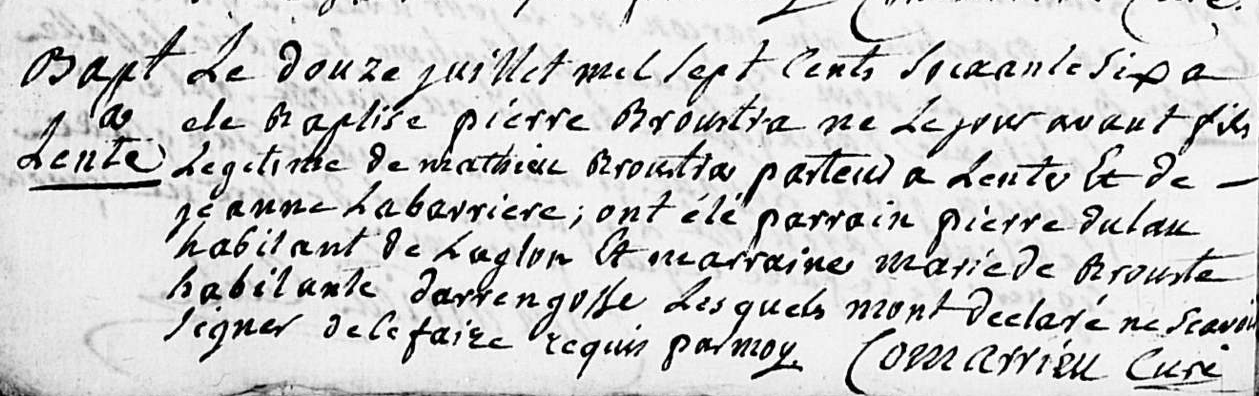 Bapt Le douze juillet mil sept Cents Soixante Six a
a ete Baptise pierre Broustra ne Le jour avant fils
Lente Legitime de mathieu Broustra parteur a Lente Et de
jeanne Labarriere ; ont été parrain pierre dulau
habitant de Luglon Et marraine marie de Brouste
habitante darrengosse Lesquels mont declaré ne Scavoir
signer de le faire requis par moy Comarrieu Curé